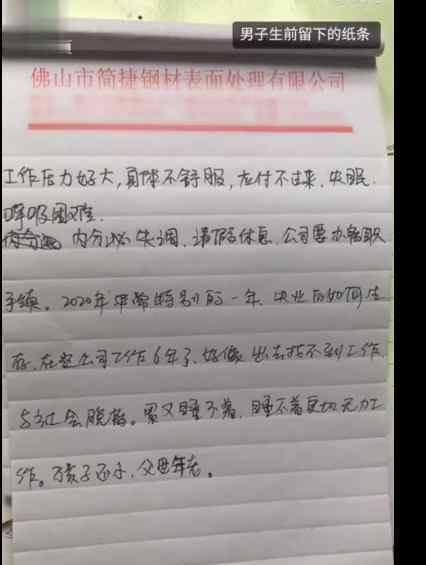 男子生前留下的纸条
佛山市简捷钢材表面处理有限公司
工作压力好大,身体不舒服,应付不过来,失眠.
呼吸困难.
内分泌失调,请假休息,公司要办离职
手续。2020年非常特别的一年,失业后如何生
存,在这公司工作6年了,好像出去找不到工作
与社会脱格。累又睡不着,睡不着更加无力工
作。孩子还小,父母年老。